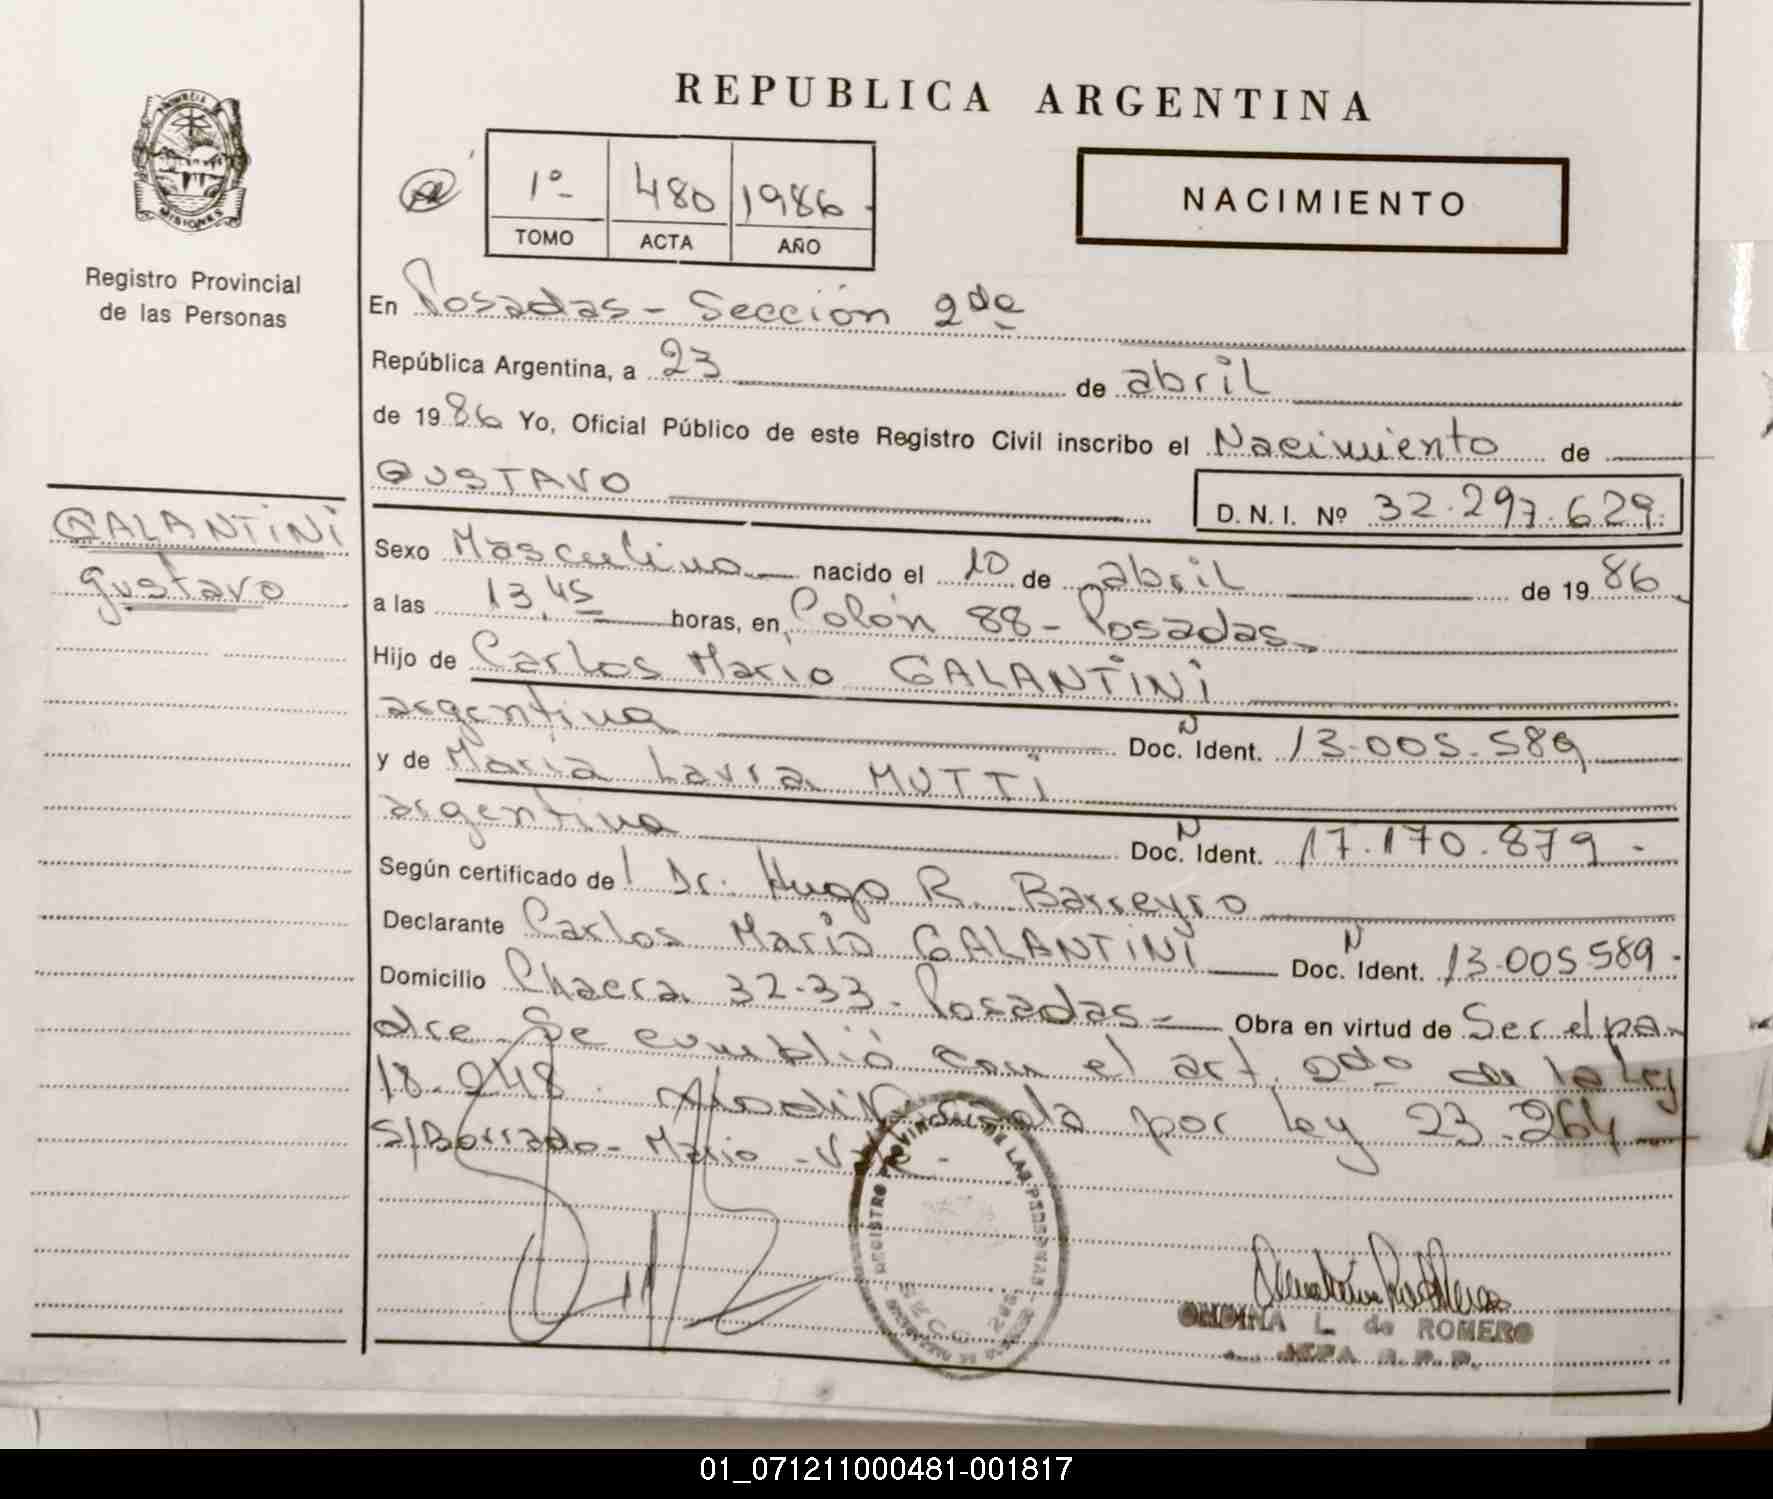 REPUBLICA ARGENTINA
MISIONES
Registro Provincial
de las Personas
1º 480 1986
TOMO ACTA AÑO
NACIMIENTO
En Posadas - Sección 2da
República Argentina, a 23 de abril
de 1986 Yo, Oficial Público de este Registro Civil inscribo el Nacimiento de
GUSTAVO D.N.I. Nº 32.297.629.
GALANTINI
gustavo
Sexo Masculino nacido el 10 de abril de 1986
a las 13,45 horas, en Colón 88 - Posadas
Hijo de Carlos Mario GALANTINI
argentina Doc. N Ident. 13.005.589
y de Maria Laura MUTTI
argentina Doc. N Ident. 17.170.879.-
Según certificado de Dr. Hugo R. Barreyro
Declarante Carlos Mario GALANTINI Doc. N Ident. 13.005.589.
Domicilio Chacra 32-33 - Posadas - Obra en virtud de Ser el pa
dre Se cumplió con el art. 2do de la Ley
18.248. Modificada por Ley 23.264
S/Borrado - Mario - Vale -
REGISTRO PROVINCIAL DE LAS PERSONAS
SECC. 2da
ONDINA L. de ROMERO
JEFA R.P.P.
01_071211000481-001817